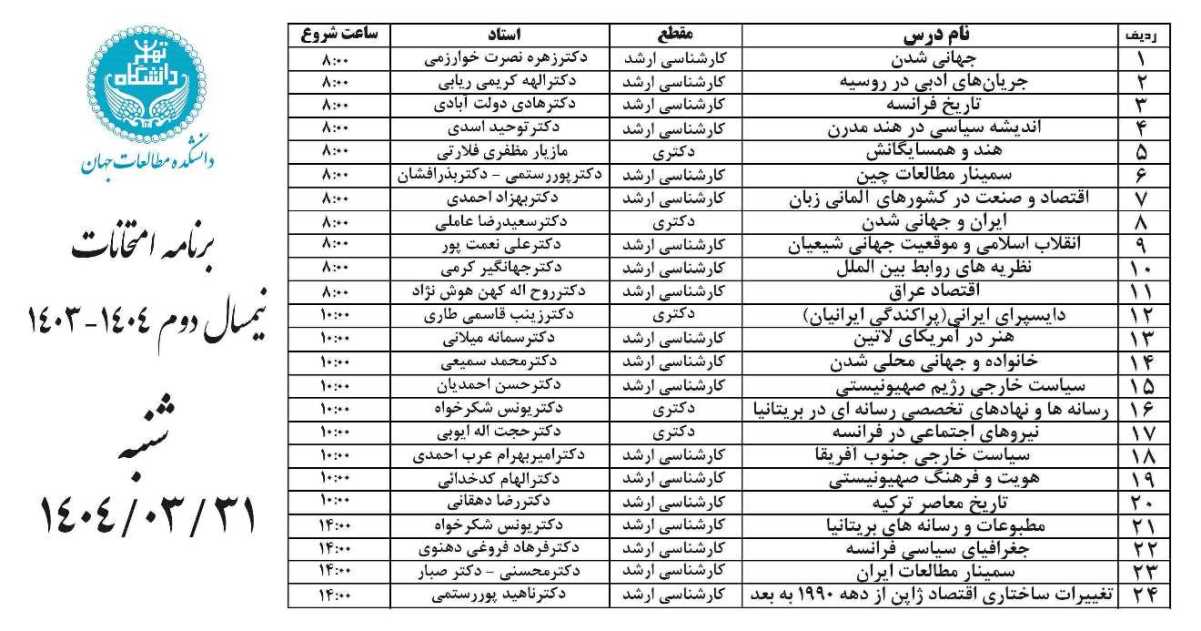 تهران
دانشگاه
دانشکده مطالعات جهان
برنامه امتحانات
نیمسال دوم ۱٤۰٤-۱٤۰۳
شنبه
۱٤۰٤/۰۳/۳۱
ردیف نام درس مقطع استاد ساعت شروع
۱ جهانی شدن کارشناسی ارشد دکترزهره نصرت خوارزمی ۸:۰۰
۲ جریان‌های ادبی در روسیه کارشناسی ارشد دکترالهه کریمی ریابی ۸:۰۰
۳ تاریخ فرانسه کارشناسی ارشد دکترهادی دولت آبادی ۸:۰۰
۴ اندیشه سیاسی در هند مدرن کارشناسی ارشد دکترتوحید اسدی ۸:۰۰
۵ هند و همسایگانش دکتری مازیار مظفری فلارتی ۸:۰۰
۶ سمینار مطالعات چین کارشناسی ارشد دکترپوررستمی - دکتربذرافشان ۸:۰۰
۷ اقتصاد و صنعت در کشورهای المانی زبان کارشناسی ارشد دکتربهزاد احمدی ۸:۰۰
۸ ایران و جهانی شدن دکتری دکترسعیدرضا عاملی ۸:۰۰
۹ انقلاب اسلامی و موقعیت جهانی شیعیان کارشناسی ارشد دکترعلی نعمت پور ۸:۰۰
۱۰ نظریه های روابط بین الملل کارشناسی ارشد دکترجهانگیر کرمی ۸:۰۰
۱۱ اقتصاد عراق کارشناسی ارشد دکترروح اله کهن هوش نژاد ۸:۰۰
۱۲ دایسپرای ایرانی(پراکندگی ایرانیان) دکتری دکترزینب قاسمی طاری ۱۰:۰۰
۱۳ هنر در آمریکای لاتین کارشناسی ارشد دکترسمانه میلانی ۱۰:۰۰
۱۴ خانواده و جهانی محلی شدن کارشناسی ارشد دکترمحمد سمیعی ۱۰:۰۰
۱۵ سیاست خارجی رژیم صهیونیستی کارشناسی ارشد دکترحسن احمدیان ۱۰:۰۰
۱۶ رسانه ها و نهادهای تخصصی رسانه ای در بریتانیا دکتری دکتریونس شکرخواه ۱۰:۰۰
۱۷ نیروهای اجتماعی در فرانسه دکتری دکترحجت اله ایوبی ۱۰:۰۰
۱۸ سیاست خارجی جنوب افریقا کارشناسی ارشد دکترامیربهرام عرب احمدی ۱۰:۰۰
۱۹ هویت و فرهنگ صهیونیستی کارشناسی ارشد دکترالهام کدخدائی ۱۰:۰۰
۲۰ تاریخ معاصر ترکیه کارشناسی ارشد دکتررضا دهقانی ۱۰:۰۰
۲۱ مطبوعات و رسانه های بریتانیا کارشناسی ارشد دکتریونس شکرخواه ۱۴:۰۰
۲۲ جغرافیای سیاسی فرانسه کارشناسی ارشد دکترفرهاد فروغی دهنوی ۱۴:۰۰
۲۳ سمینار مطالعات ایران کارشناسی ارشد دکترمحسنی - دکتر صبار ۱۴:۰۰
۲۴ تغییرات ساختاری اقتصاد ژاپن از دهه ۱۹۹۰ به بعد کارشناسی ارشد دکترناهید پوررستمی ۱۴:۰۰